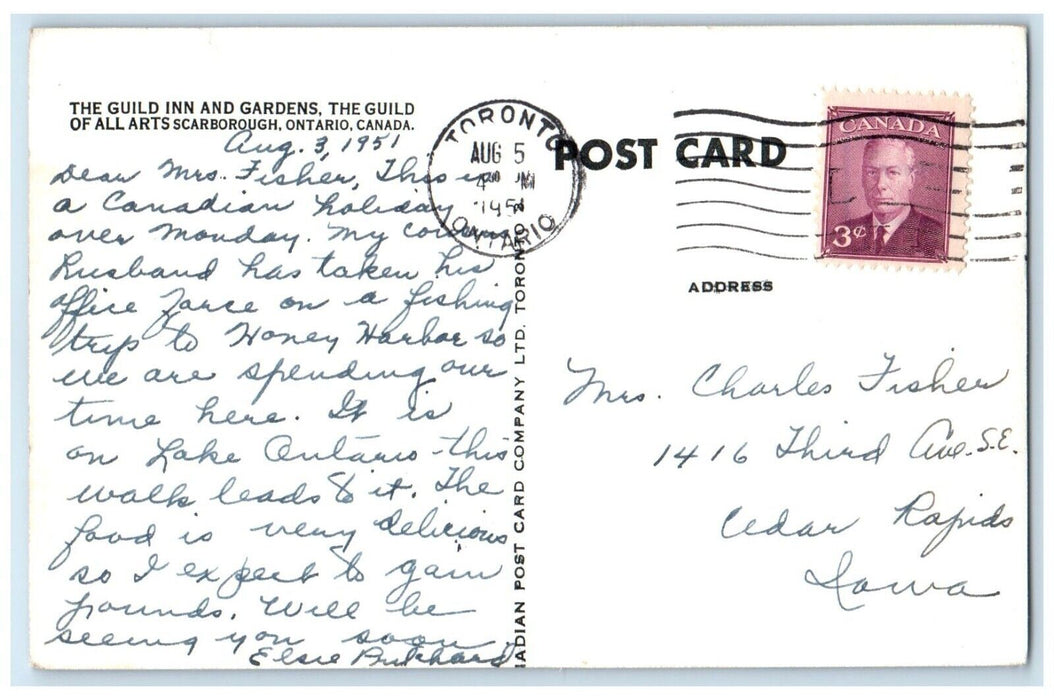 THE GUILD INN AND GARDENS, THE GUILD
OF ALL ARTS SCARBOROUGH, ONTARIO, CANADA.
Aug. 3, 1951
Dear Mrs. Fisher, This is
a Canadian holiday
over Monday. My cousins
husband has taken his
office force on a fishing
trip to Honey Harbor so
we are spending our
time here. It is
on Lake Ontario - this
walk leads to it. The
food is very delicious
so I expect to gain
pounds. Will be
seeing you soon
Elsie
ADIAN POST CARD COMPANY LTD. TORONTO 2
TORONTO
AUG 5
4 PM
1951
ONTARIO
POST CARD
CANADA
3¢
ADDRESS
Mrs. Charles Fisher
1416 Third Ave. S.E.
Cedar Rapids
Iowa